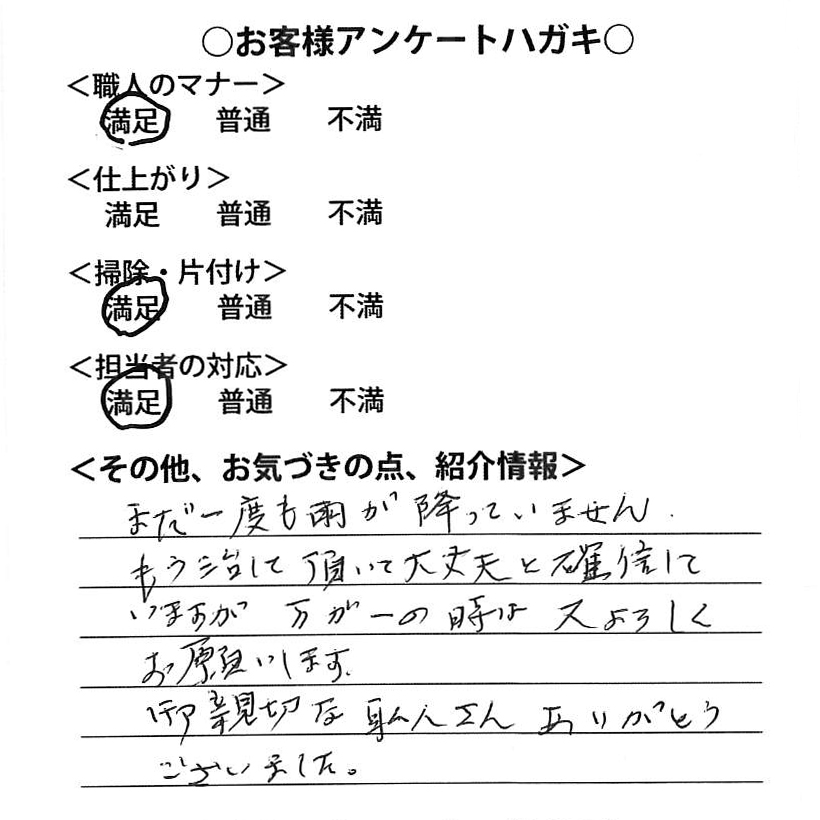 ○お客様アンケートハガキ○
＜職人のマナー＞
満足 普通 不満
＜仕上がり＞
満足 普通 不満
＜掃除・片付け＞
満足 普通 不満
＜担当者の対応＞
満足 普通 不満
＜その他、お気づきの点、紹介情報＞
まだ一度も雨が降っていません.
もう治して頂いて大丈夫と確信して
いますが 万が一の時は又よろしく
お願いします.
御親切な職人さん ありがとう
ございました。